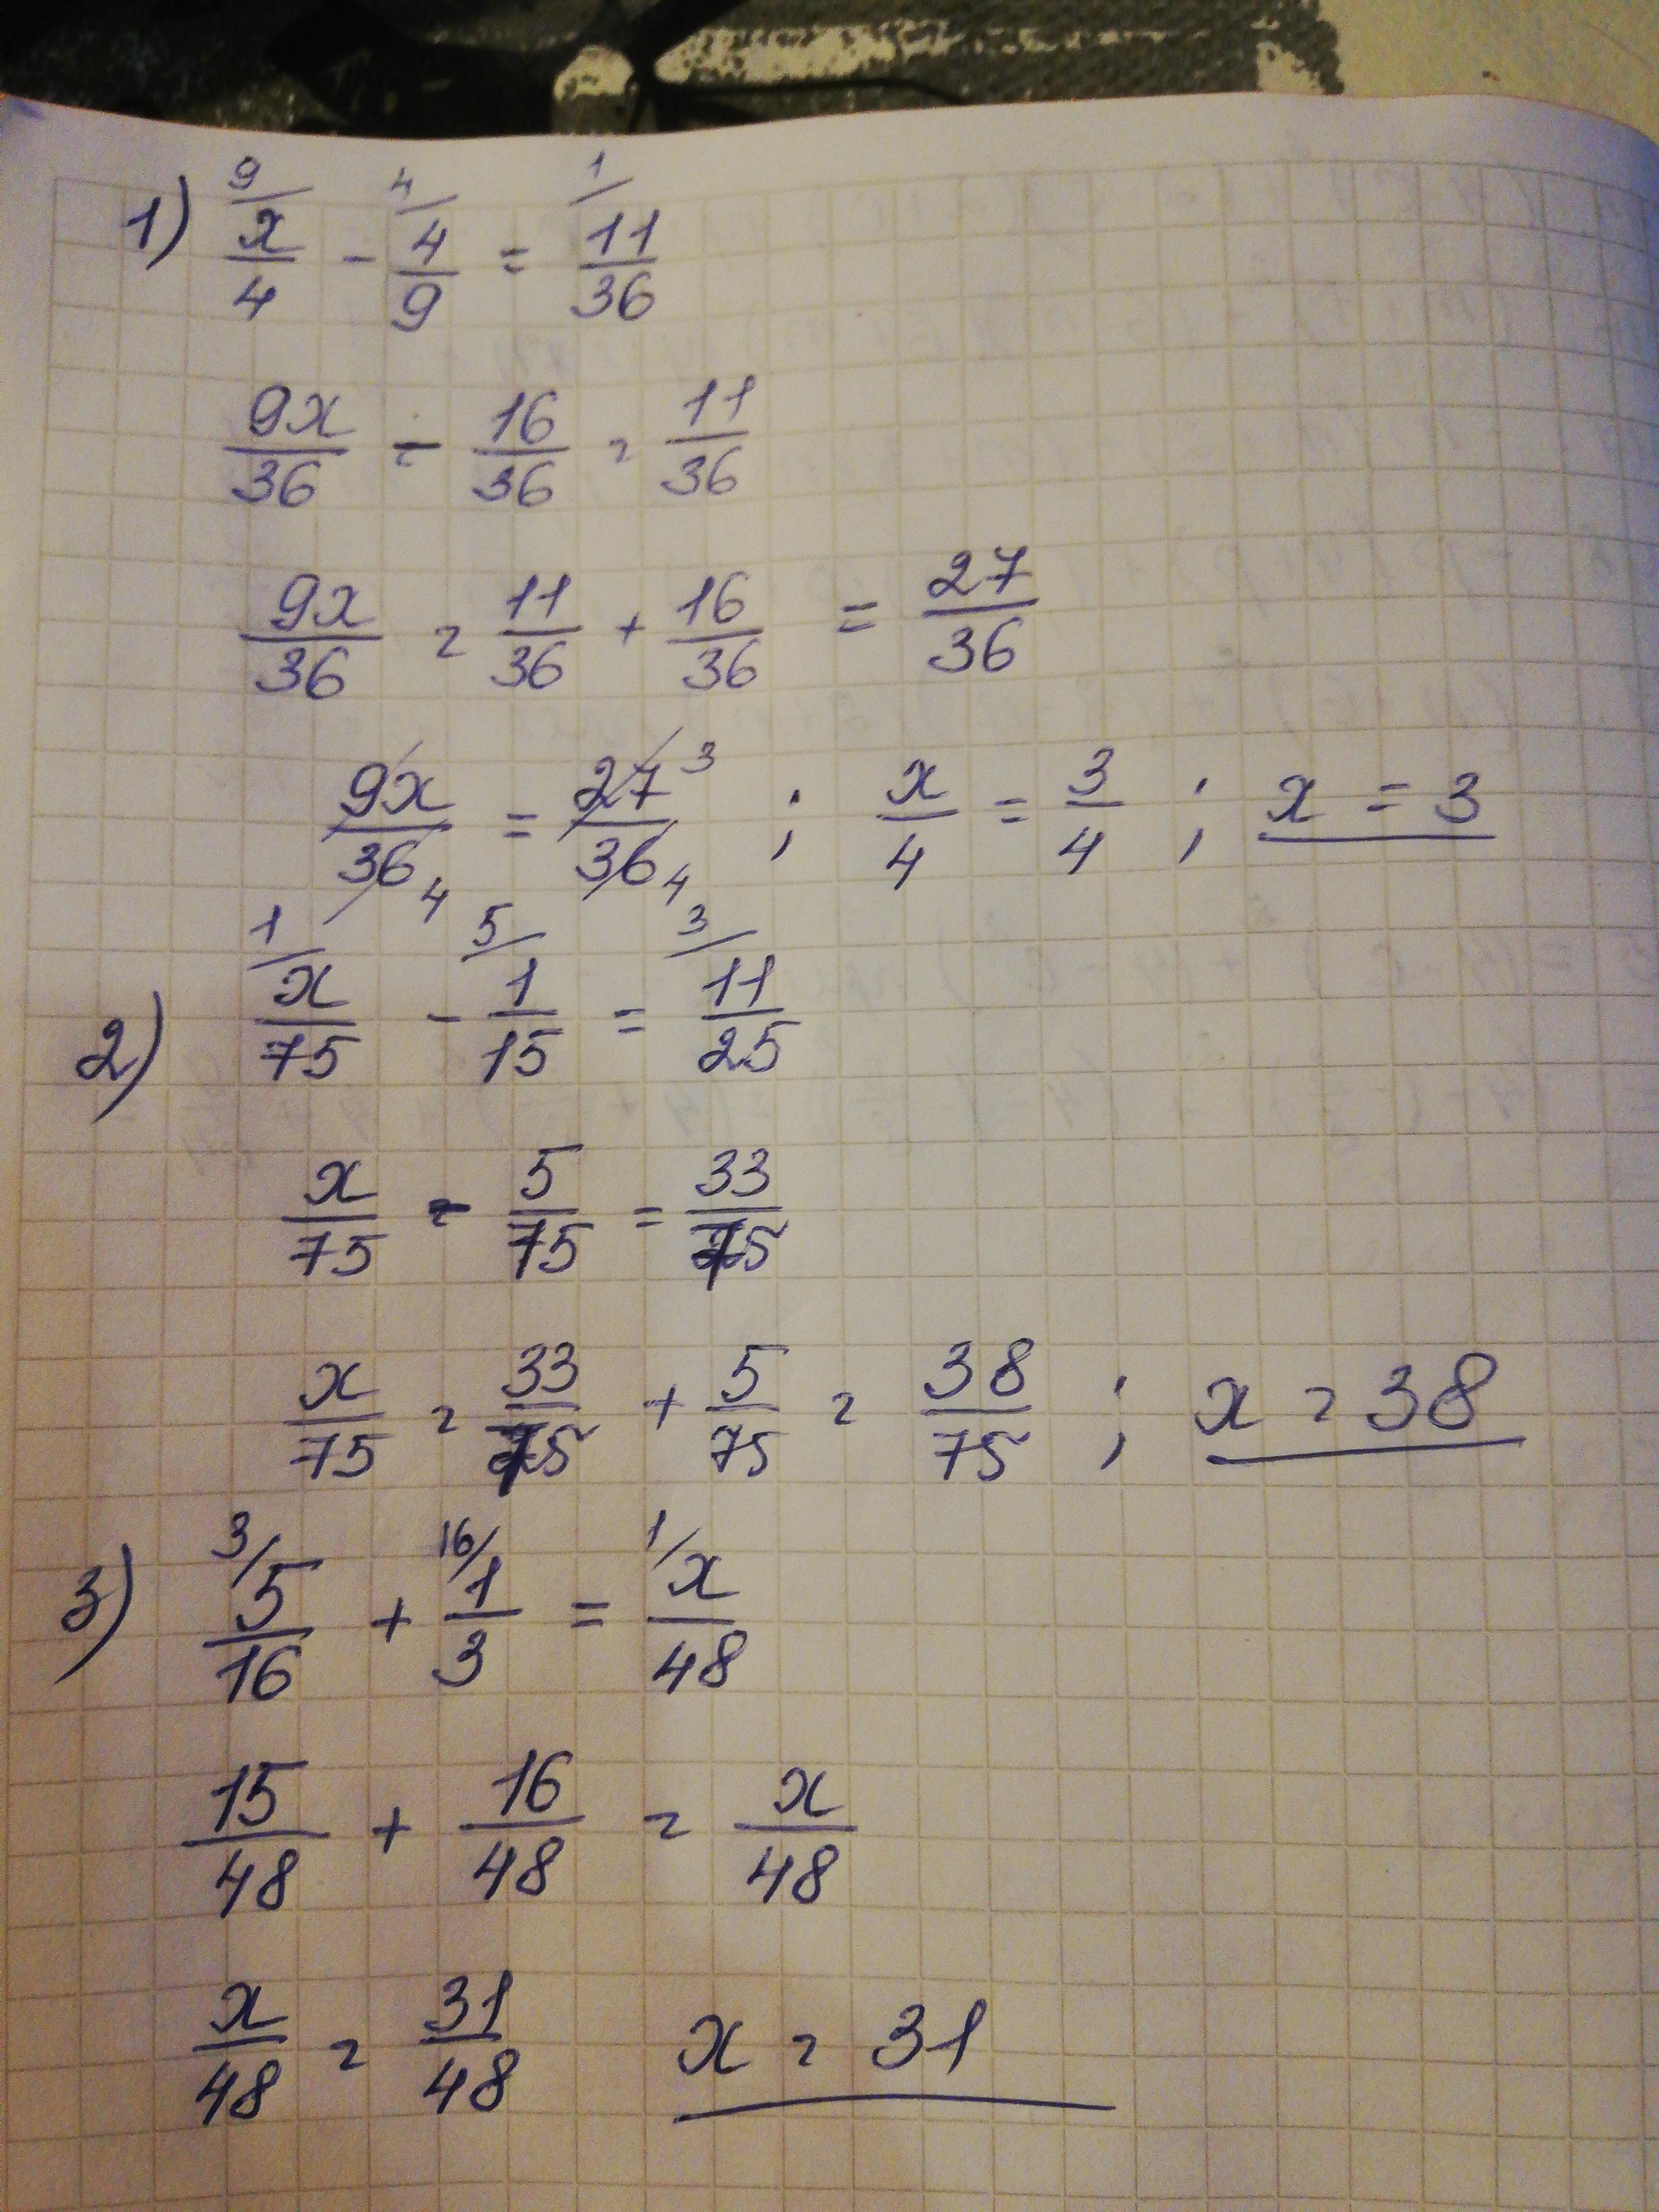 1) 9/ x/4 - 4/ 4/9 = 1/ 11/36
9x/36 - 16/36 = 11/36
9x/36 = 11/36 + 16/36 = 27/36
9x/36 4 = 27/36 3 4 ; x/4 = 3/4 ; x = 3
2) 1/ x/75 - 5/ 1/15 = 3/ 11/25
x/75 - 5/75 = 33/75
x/75 = 33/75 + 5/75 = 38/75 ; x = 38
3) 3/ 5/16 + 16/ 1/3 = 1/ x/48
15/48 + 16/48 = x/48
x/48 = 31/48 x = 31